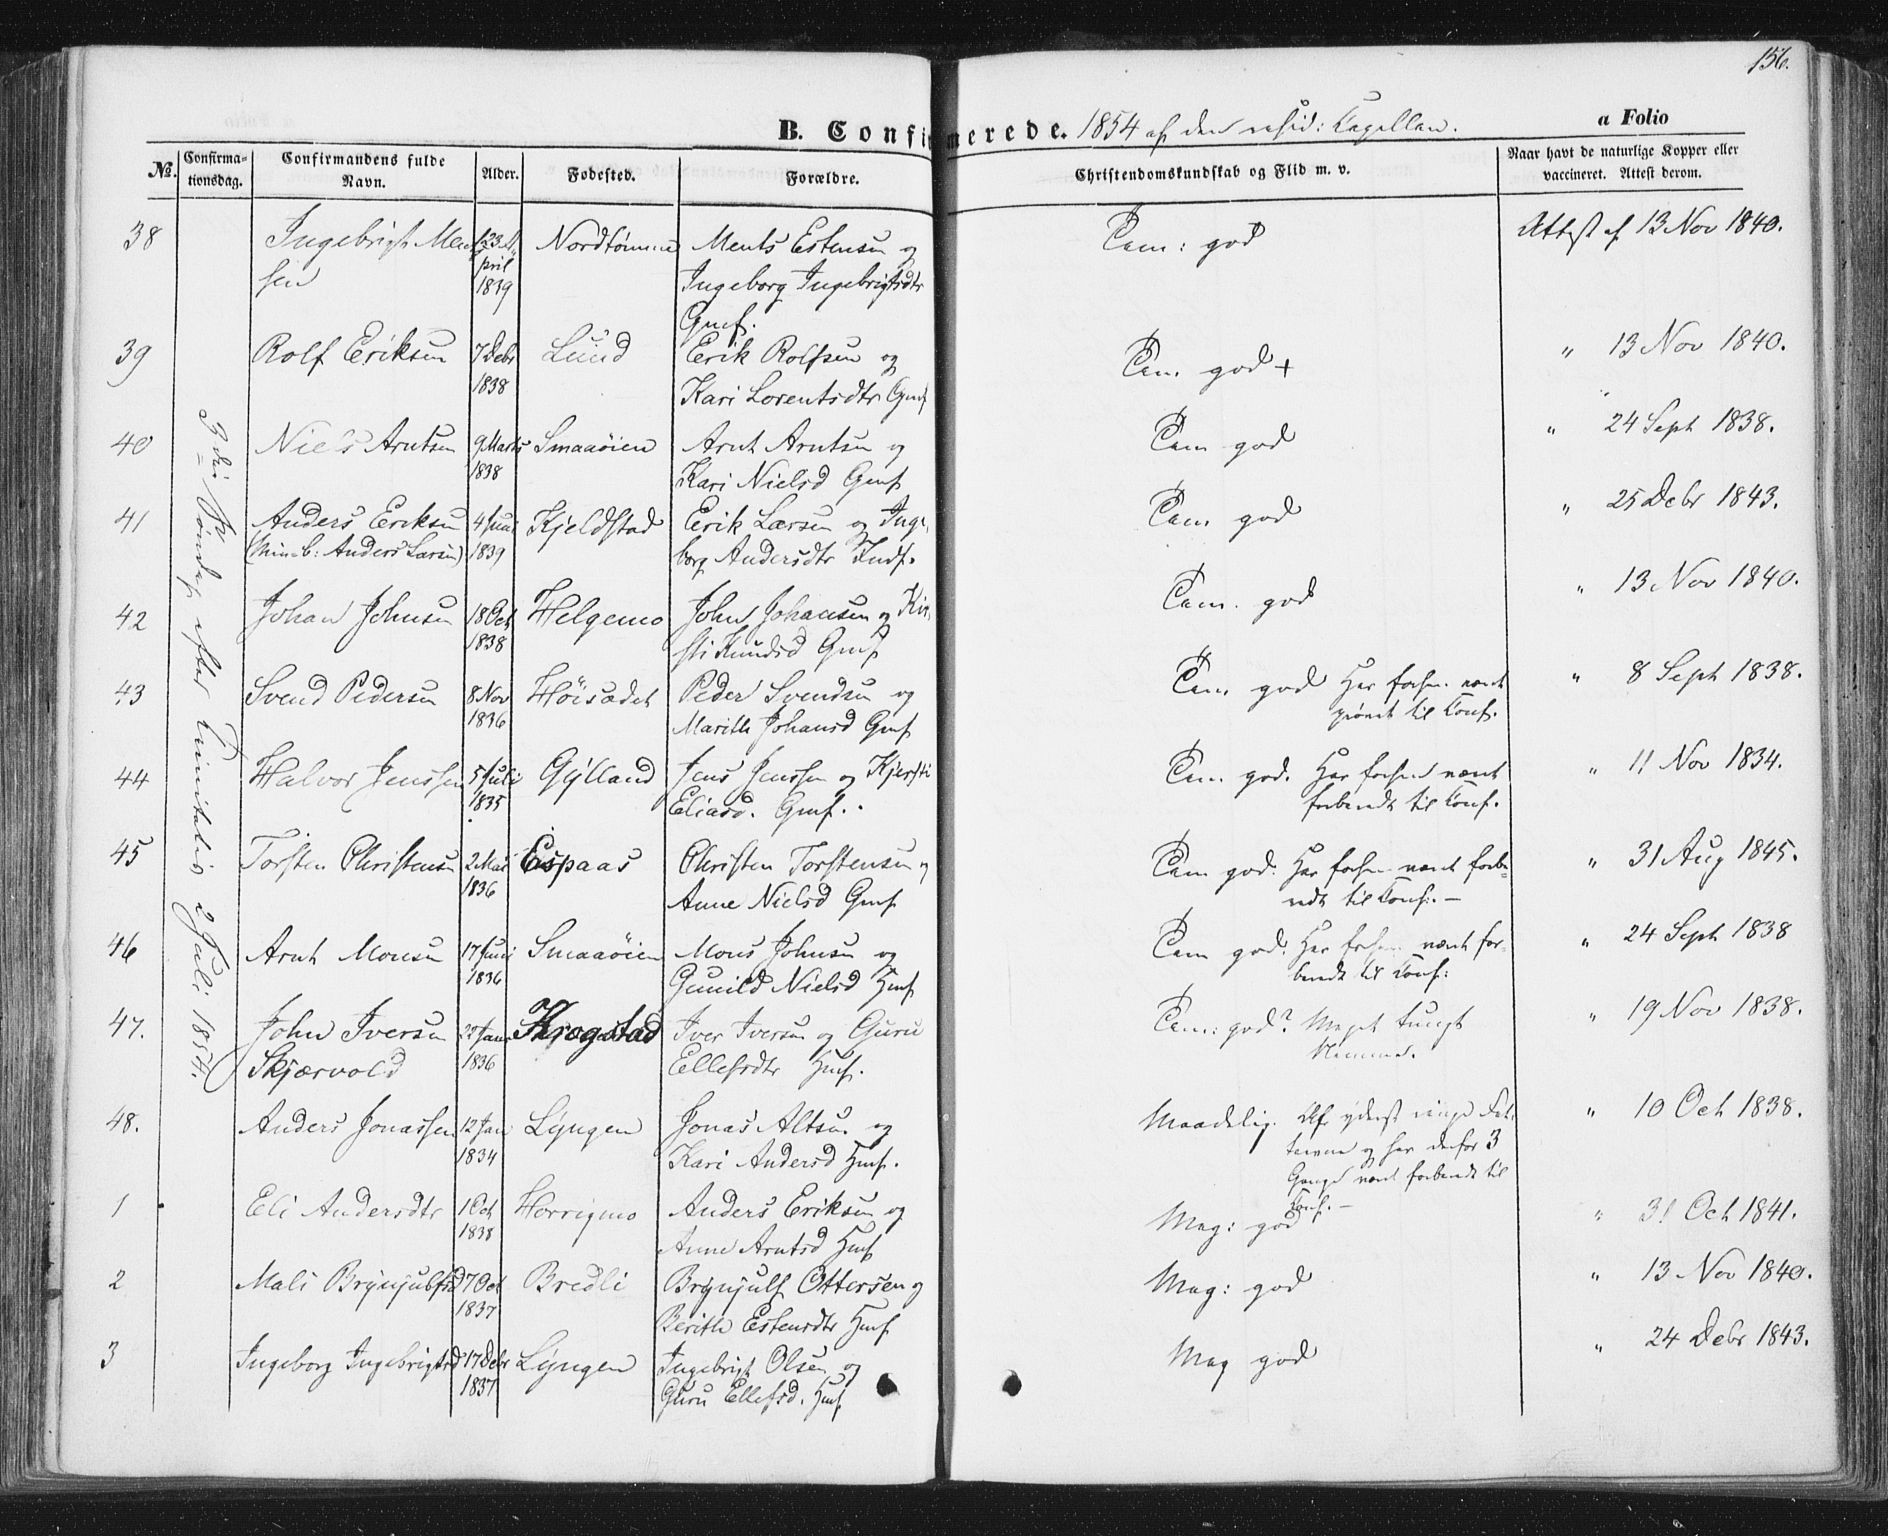 156.
B. Confirmerede. 1854 af den resid: Capellan. a Folio
No. Confirmationsdag. Confirmandens fulde Navn. Alder. Fødested. Forældre. Christendomskundskab og Flid m. v. Naar havt de naturlige Kopper eller vaccineret. Attest derom.
3die Søndag efter Trinitatis 2 Juli 1854.
38 Ingebrigt Ment- 23 A- Nordtømme Ments Estensen og Cam: god Attest af 13 Nov 1840.
sen pril Ingeborg Ingebrigtsdtr
1839 Gmf.
39 Rolf Eriksen 7 Debr Lund Erik Rolfsen og Cam. god + " 13 Nov 1840.
1838 Kari Lorentsdtr Gmf
40 Niels Arntsen 9 Marts Smaaøien Arnt Arntsen og Cam god " 24 Sept 1838.
1838 Kari Nielsd Gmf
41 Anders Eriksen 4 Juni Kjeldstad Erik Larsen og Inge- Cam god " 25 Debr 1843.
(Min. b: Anders Larsen) 1839 borg Andersdtr Indf.
42 Johan Johnsen 18 Oct Helgemo John Johansen og Kir- Cam. god " 13 Nov 1840.
1838 sti Knudsd Gmf
43 Svend Pedersen 8 Nov Høisædet Peder Svendsen og Cam god Har forhen været " 8 Sept 1838.
1836 Marith Johansd Gmf prøvet til Conf.
44 Halvor Jenssen 5 Juli Gylland Jens Jenssen og Kjersti Cam. god. Har forhen været " 11 Nov 1834.
1835 Eliasd. Gmf. forberedt til Conf.
45 Torsten Christensen 2 Mai Espaas Christen Torstensen og Cam god. Har forhen været forbe- " 31 Aug 1845.
1836 Anne Nielsd Gmf redt til Conf. —
46 Arnt Monsen 17 Juni Smaaøien Mons Johnsen og Cam god. Har forhen været for- " 24 Sept 1838
1836 Gunild Nielsd Hmf beredt til Conf:
47. John Iversen 22 Janr Krogstad Iver Iversen og Guru Cam: god? Meget tungt " 19 Nov 1838.
Skjærvold 1836 Ellefsdtr Hmf. Nemme.
48. Anders Jonassen 12 Jan Lyngen Jonas Altsen og Maadelig. Af yderst ringe Fat- " 10 Oct 1838.
1834 Kari Andersd Hmf. teevne og har derfor 3
Gange været forberedt til
Conf. —
1 Eli Andersdtr 1 Oct Horrigmo Anders Eriksen og Meg: god " 31 Oct 1841.
1838 Anne Arntsd Hmf
2 Mali Brynjulfsd 7 Oct Bredli Brynjulf Ottersen og Meg: god " 13 Nov 1840.
1837 Berith Estensdtr Hmf
3 Ingeborg Ingebrigtsd 17 Debr Lyngen Ingebrigt Olsen og Meg god " 24 Debr 1843.
1837 Guru Ellefsd. Hmf